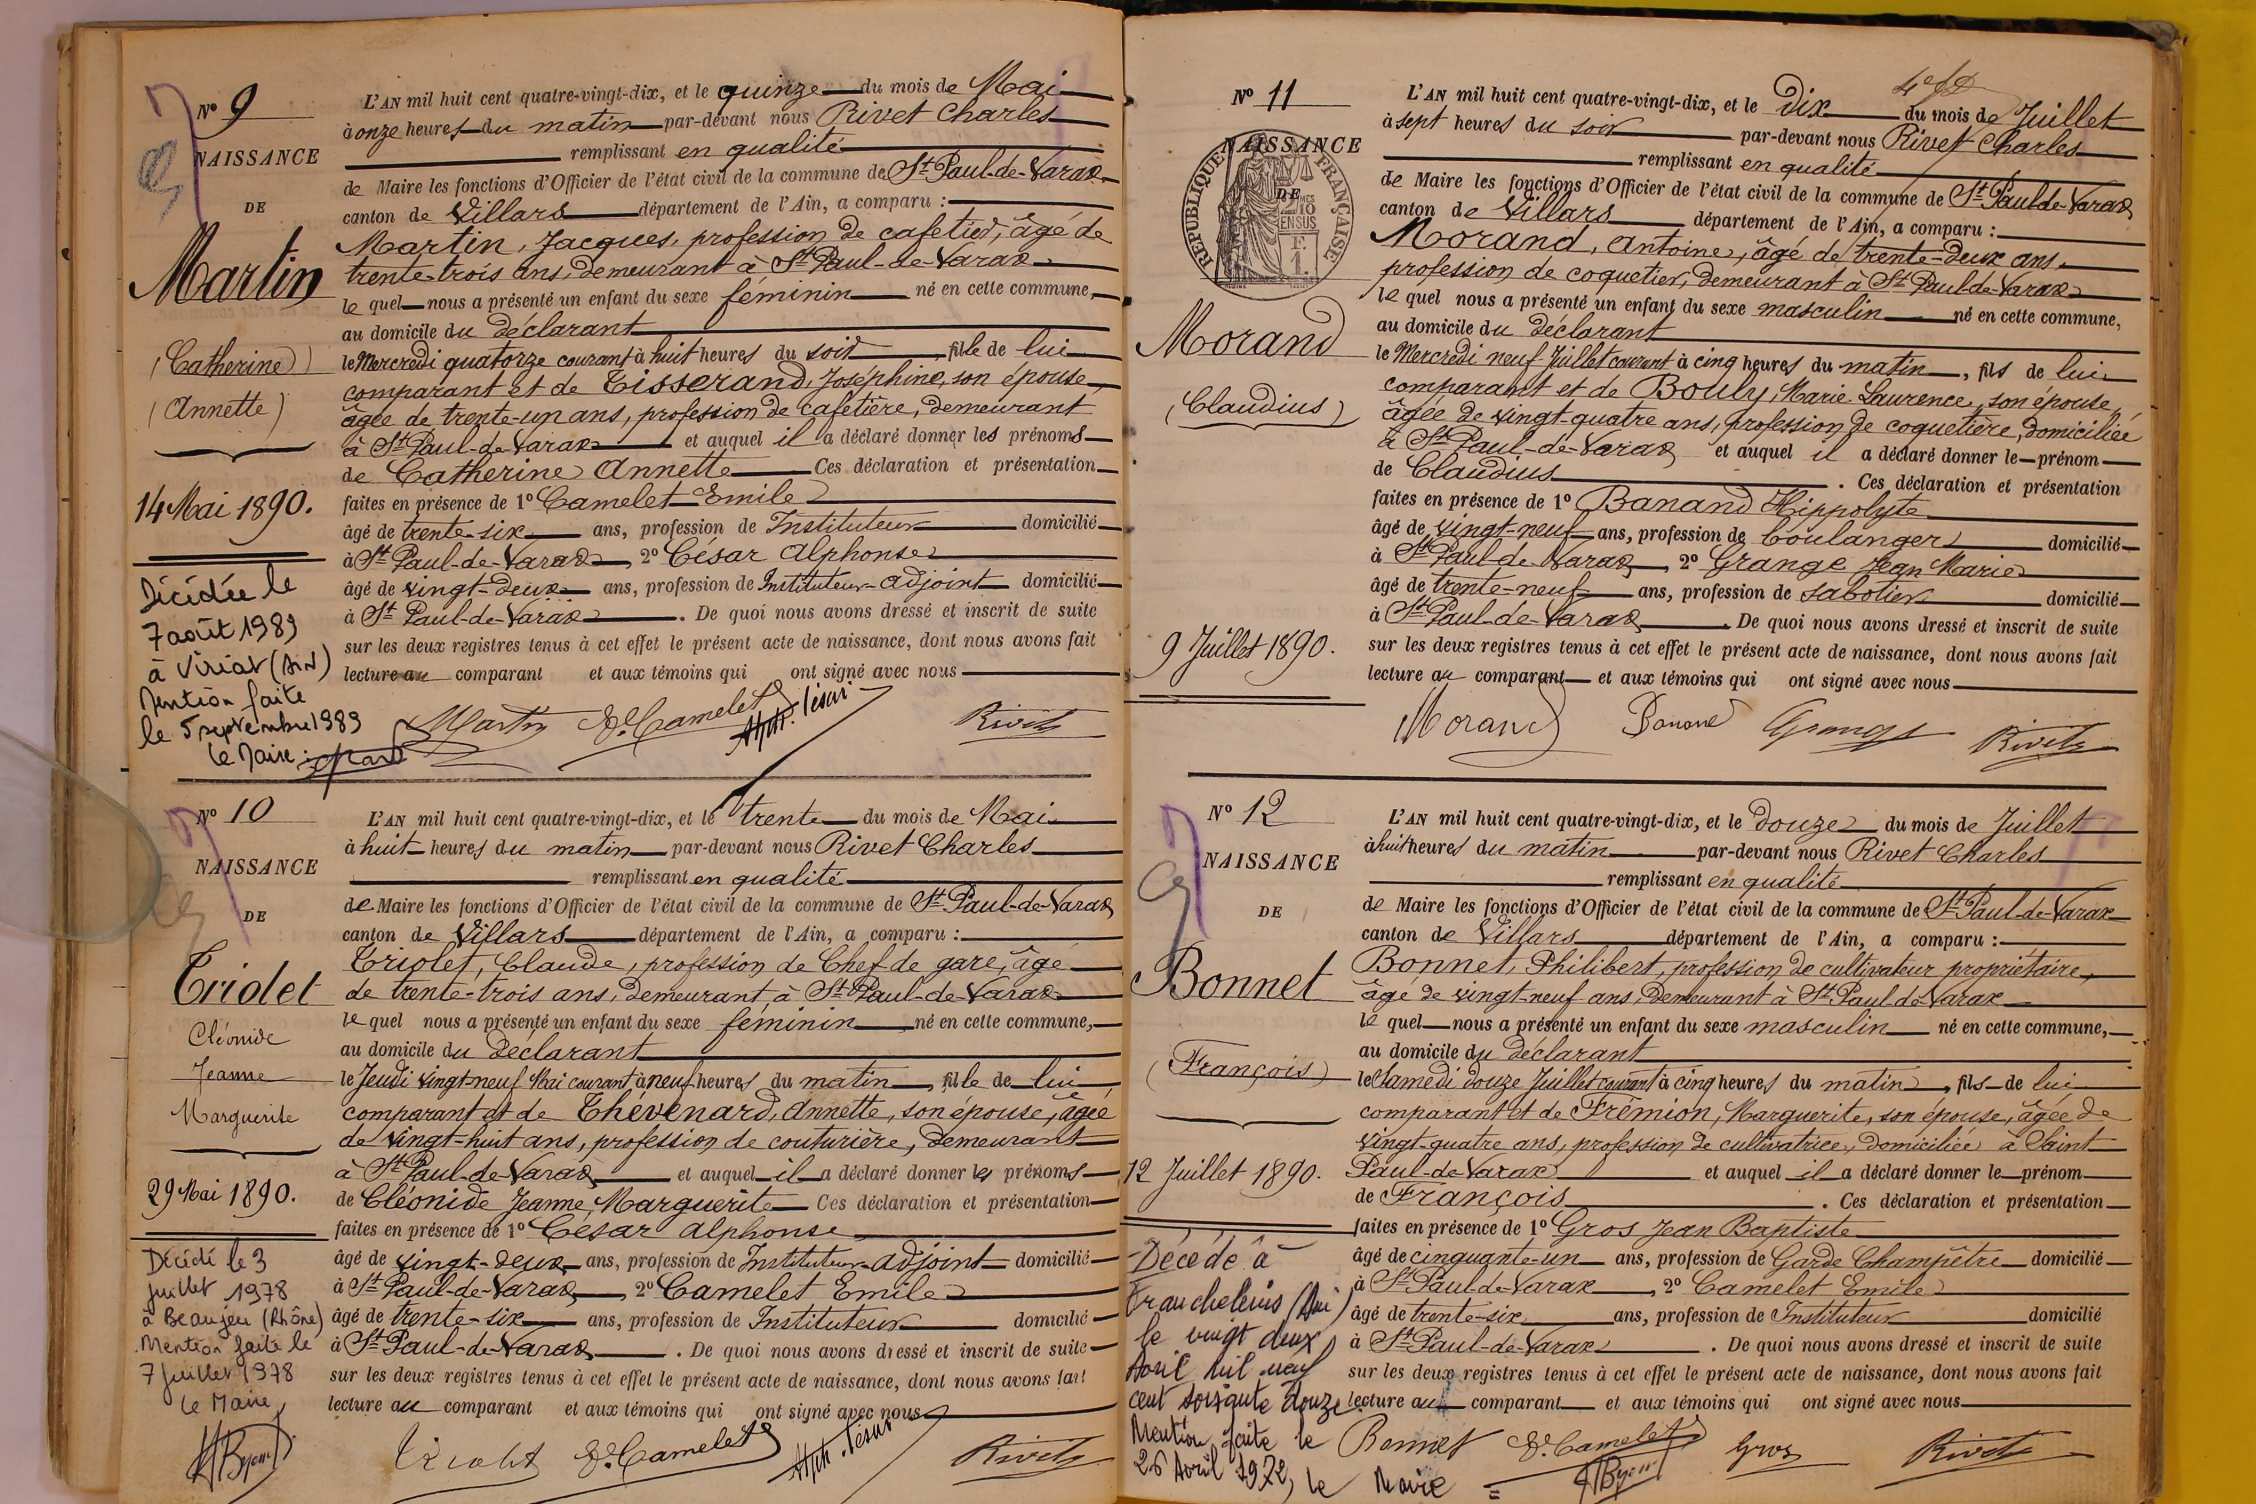 N° 9
NAISSANCE
DE
Martin
(Catherine)
(Annette)
14 Mai 1890.
Décédée le
7 août 1989
à Viriat (AIN)
Mention faite
le 5 septembre 1989
Le Maire :
L'AN mil huit cent quatre-vingt-dix, et le quinze du mois de Mai
à onze heures du matin par-devant nous Rivet Charles
remplissant en qualité
de Maire les fonctions d'Officier de l'état civil de la commune de St Paul-de-Varax
canton de Villars département de l'Ain, a comparu :
Martin, Jacques, profession de cafetier, âgé de
trente-trois ans, demeurant à St Paul-de-Varax
le quel nous a présenté un enfant du sexe féminin né en cette commune,
au domicile du déclarant
le Mercredi quatorze courant à huit heures du soir, fille de lui
comparant et de Tisserand, Joséphine, son épouse,
âgée de trente-un ans, profession de cafetière, demeurant
à St Paul-de-Varax et auquel il a déclaré donner les prénoms
de Catherine Annette Ces déclaration et présentation
faites en présence de 1° Camelet Emile
âgé de trente-six ans, profession de Instituteur domicilié
à St Paul-de-Varax, 2° César Alphonse
âgé de vingt-deux ans, profession de Instituteur-adjoint domicilié
à St Paul-de-Varax. De quoi nous avons dressé et inscrit de suite
sur les deux registres tenus à cet effet le présent acte de naissance, dont nous avons fait
lecture au comparant et aux témoins qui ont signé avec nous
Martin E. Camelet Alph. César Rivet
N° 10
NAISSANCE
DE
Triolet
Cléonide
Jeanne
Marguerite
29 Mai 1890.
Décédé le 3
juillet 1978
à Beaujeu (Rhône)
Mention faite le
7 juillet 1978
Le Maire
L'AN mil huit cent quatre-vingt-dix, et le trente du mois de Mai
à huit heures du matin par-devant nous Rivet Charles
remplissant en qualité
de Maire les fonctions d'Officier de l'état civil de la commune de St Paul-de-Varax
canton de Villars département de l'Ain, a comparu :
Triolet, Claude, profession de Chef de gare, âgé
de trente-trois ans, demeurant à St Paul-de-Varax
le quel nous a présenté un enfant du sexe féminin né en cette commune,
au domicile du déclarant
le Jeudi vingt-neuf Mai courant à neuf heures du matin, fille de lui
comparant et de Thévenard, Annette, son épouse, âgée
de vingt-huit ans, profession de couturière, demeurant
à St Paul-de-Varax et auquel il a déclaré donner les prénoms
de Cléonide Jeanne, Marguerite Ces déclaration et présentation
faites en présence de 1° César Alphonse
âgé de vingt-deux ans, profession de Instituteur-adjoint domicilié
à St Paul-de-Varax, 2° Camelet Emile
âgé de trente-six ans, profession de Instituteur domicilié
à St Paul-de-Varax. De quoi nous avons dressé et inscrit de suite
sur les deux registres tenus à cet effet le présent acte de naissance, dont nous avons fait
lecture au comparant et aux témoins qui ont signé avec nous
Triolet E. Camelet Alph. César Rivet
N° 11
NAISSANCE
DE
RÉPUBLIQUE FRANÇAISE
Morand
(Claudius)
9 Juillet 1890.
L'AN mil huit cent quatre-vingt-dix, et le Dix du mois de Juillet
à sept heures du soir par-devant nous Rivet Charles
remplissant en qualité
de Maire les fonctions d'Officier de l'état civil de la commune de St Paul-de-Varax
canton de Villars département de l'Ain, a comparu :
Morand, Antoine, âgé de trente-deux ans,
profession de coquetier, demeurant à St Paul-de-Varax
le quel nous a présenté un enfant du sexe masculin né en cette commune,
au domicile du déclarant
le Mercredi neuf Juillet courant à cinq heures du matin, fils de lui
comparant et de Bouly, Marie Laurence, son épouse,
âgée de vingt-quatre ans, profession de coquetière, domiciliée
à St Paul-de-Varax et auquel il a déclaré donner le prénom
de Claudius. Ces déclaration et présentation
faites en présence de 1° Banand Hippolyte
âgé de vingt-neuf ans, profession de boulanger domicilié
à St Paul-de-Varax, 2° Grange Jean Marie
âgé de trente-neuf ans, profession de sabotier domicilié
à St Paul-de-Varax. De quoi nous avons dressé et inscrit de suite
sur les deux registres tenus à cet effet le présent acte de naissance, dont nous avons fait
lecture au comparant et aux témoins qui ont signé avec nous
Morand Banand Grange Rivet
N° 12
NAISSANCE
DE
Bonnet
(François)
12 Juillet 1890.
Décédé à
Francheleins (Ain)
le vingt deux
Avril mil neuf
cent soixante douze
Mention faite le
26 Avril 1972, le Maire =
L'AN mil huit cent quatre-vingt-dix, et le douze du mois de Juillet
à huit heures du matin par-devant nous Rivet Charles
remplissant en qualité
de Maire les fonctions d'Officier de l'état civil de la commune de St Paul-de-Varax
canton de Villars département de l'Ain, a comparu :
Bonnet, Philibert, profession de cultivateur propriétaire,
âgé de vingt-neuf ans, demeurant à St Paul-de-Varax
le quel nous a présenté un enfant du sexe masculin né en cette commune,
au domicile du déclarant
le Samedi douze Juillet courant à cinq heures du matin, fils de lui
comparant et de Frémion, Marguerite, son épouse, âgée de
vingt-quatre ans, profession de cultivatrice, domiciliée à Saint
Paul-de-Varax et auquel il a déclaré donner le prénom
de François. Ces déclaration et présentation
faites en présence de 1° Gros Jean Baptiste
âgé de cinquante-un ans, profession de Garde Champêtre domicilié
à St Paul-de-Varax, 2° Camelet Emile
âgé de trente-six ans, profession de Instituteur domicilié
à St Paul-de-Varax. De quoi nous avons dressé et inscrit de suite
sur les deux registres tenus à cet effet le présent acte de naissance, dont nous avons fait
lecture au comparant et aux témoins qui ont signé avec nous
Bonnet E. Camelet Gros Rivet